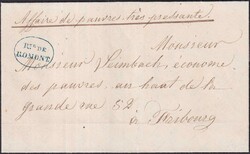 Affaire de pauvres très pressante.
Monsieur
Monsieur Leimbach, économe
des pauvres, au haut de la
grande rue 52
à Fribourg
Bau DE
ROMONT